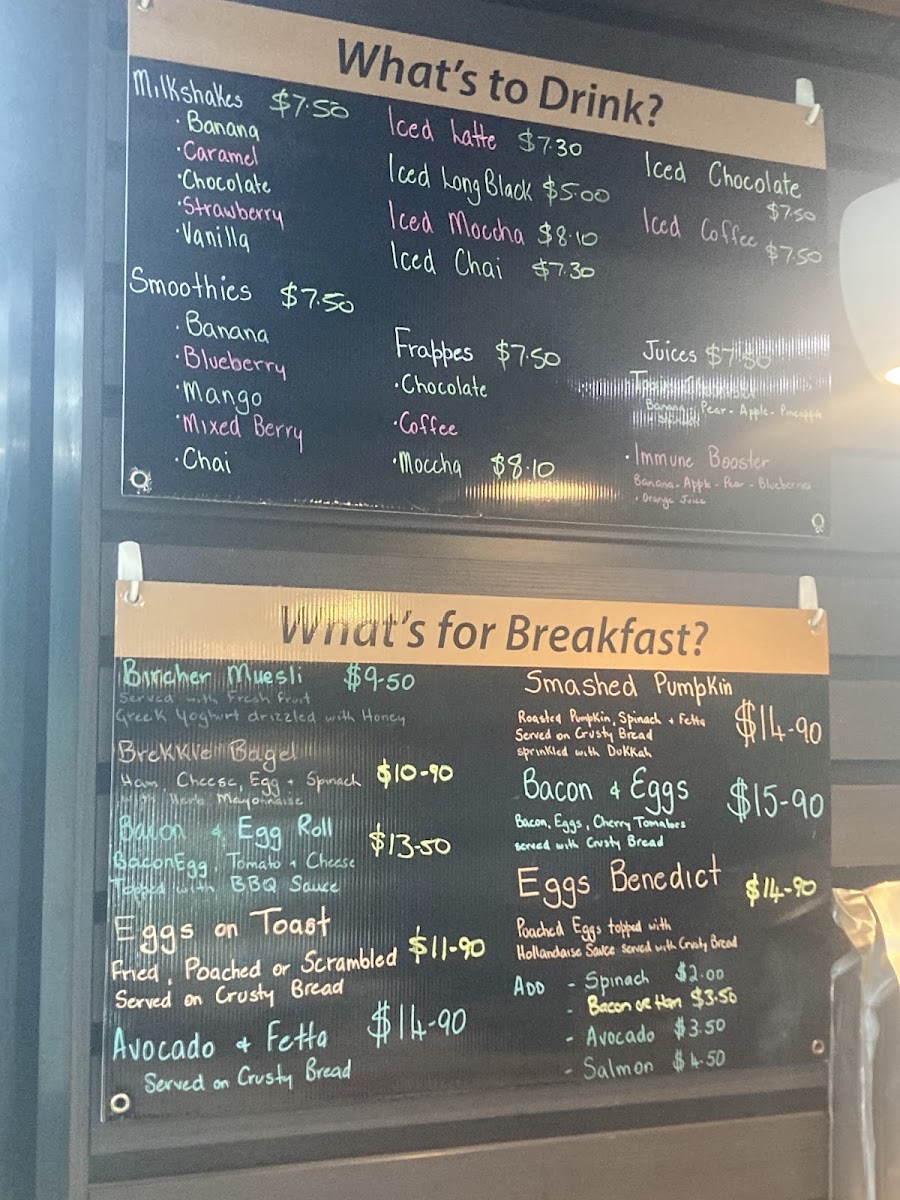 What's to Drink?
Milkshakes $7.50
· Banana
· Caramel
· Chocolate
· Strawberry
· Vanilla
Smoothies $7.50
· Banana
· Blueberry
· Mango
· Mixed Berry
· Chai
Iced Latte $7.30
Iced Long Black $5.00
Iced Moccha $8.10
Iced Chai $7.30
Frappes $7.50
· Chocolate
· Coffee
· Moccha $8.10
Iced Chocolate
$7.50
Iced Coffee
$7.50
Juices $7.50
Banana - Pear - Apple - Pineapple
· Immune Booster
Banana - Apple - Pear - Blueberries
· Orange Juice
What's for Breakfast?
Bircher Muesli $9-50
Served with Fresh Fruit
Greek Yoghurt drizzled with Honey
Brekkie Bagel
Ham, Cheese, Egg + Spinach $10-90
with Herb Mayonnaise
Bacon & Egg Roll $13-50
Bacon Egg, Tomato + Cheese
Topped with BBQ Sauce
Eggs on Toast $11-90
Fried, Poached or Scrambled
Served on Crusty Bread
Avocado & Fetta $14-90
Served on Crusty Bread
Smashed Pumpkin
Roasted Pumpkin, Spinach + Fetta $14-90
Served on Crusty Bread
sprinkled with Dukkah
Bacon & Eggs $15-90
Bacon, Eggs, Cherry Tomatoes
served with Crusty Bread
Eggs Benedict $14-90
Poached Eggs topped with
Hollandaise Sauce served with Crusty Bread
ADD - Spinach $2.00
- Bacon or Ham $3.50
- Avocado $3.50
- Salmon $4.50